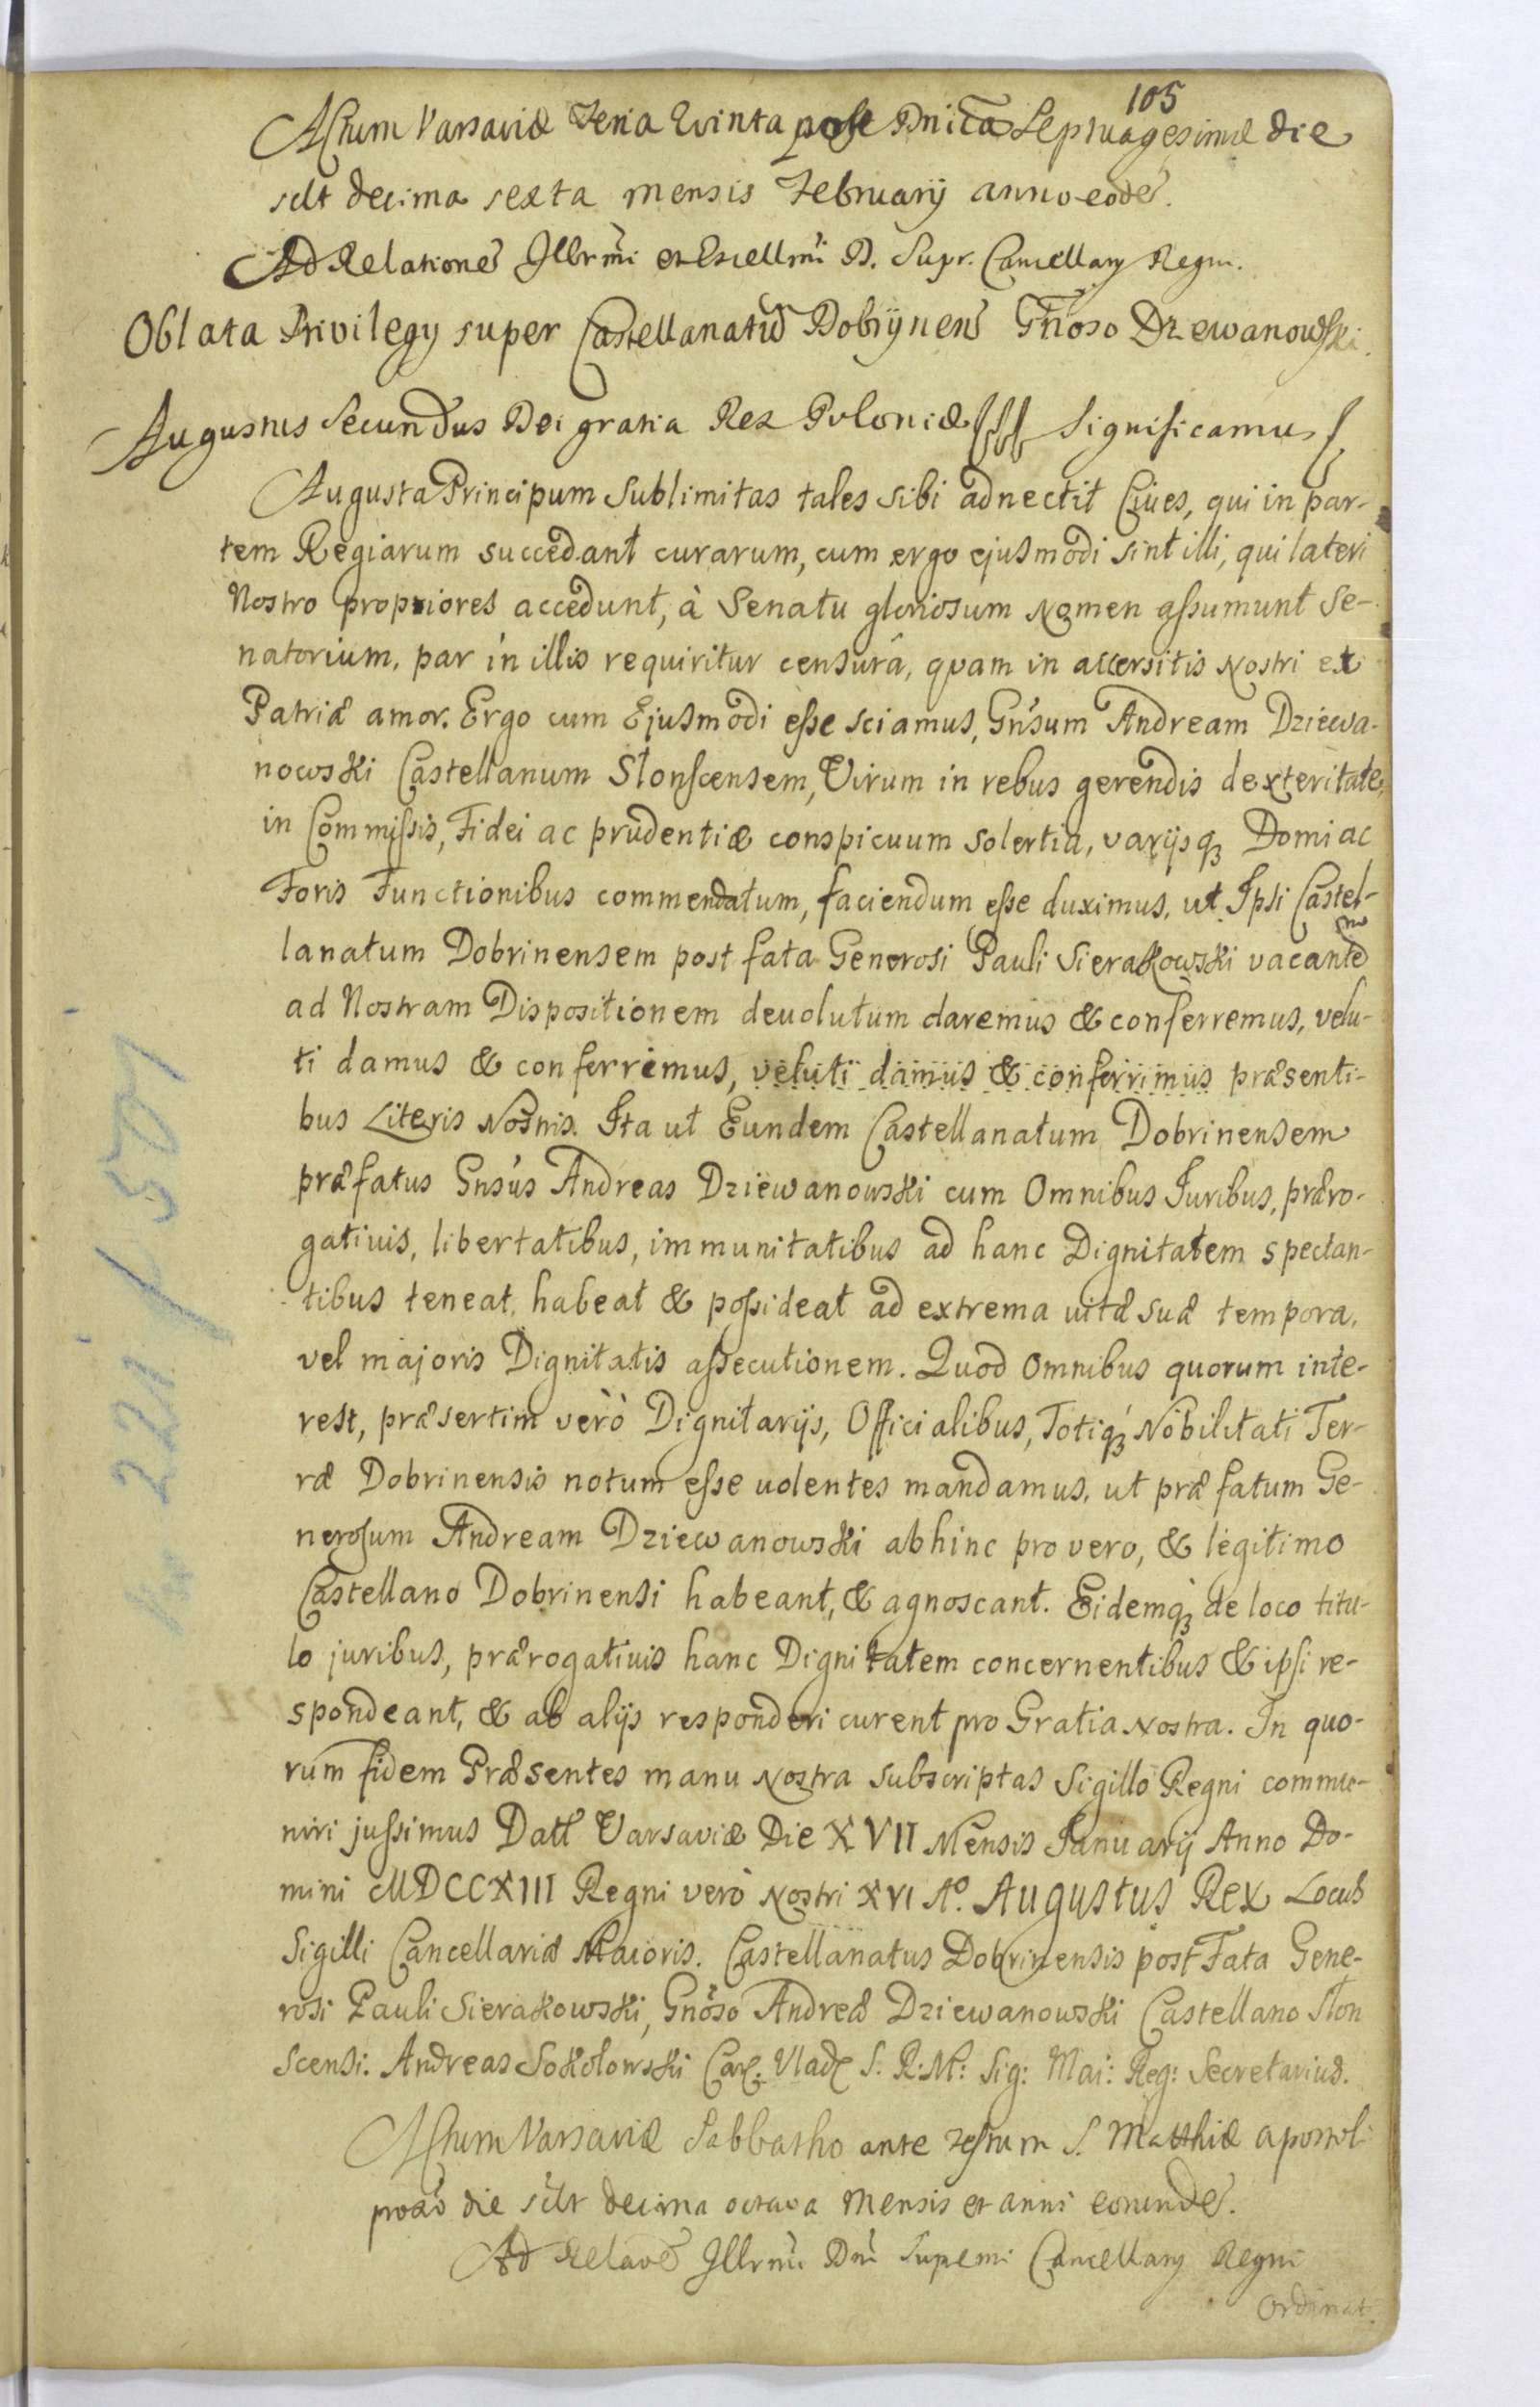 105
Actum Varsaviæ Feria Qvinta post Dnicã Septuagesimæ die
scilt decima sexta mensis February anno eodẽ.
Ad Relationẽ Illrmi et Excellmi D. Supr. Cancellary Regni.
Oblata Privilegy super Castellanatũ Dobrynens Gnoso Dzewanowski.
Augustus Secundus Dei gratia Rex Poloniæ Significamus
Augusta Principum Sublimitas tales sibi adnectit Cives, qui in par-
tem Regiarum succedant curarum, cum ergo ejusmodi sint illi, qui lateri
Nostro propriores accedunt, à Senatu gloriosum Nomen assumunt Se-
natorium, par in illis requiritur censura, quam in accersitis Nostri et
Patriæ amor. Ergo cum Ejusmodi esse sciamus, Gnsum Andream Dziewa-
nowski Castellanum Slonscensem, Virum in rebus gerendis dexteritate,
in Commissis, Fidei ac prudentiæ conspicuum solertia, varijsq; Domi ac
Foris Functionibus commendatum, faciendum esse duximus, ut Ipsi Castel-
lanatum Dobrinensem post fata Generosi Pauli Sierakowski vacantem
ad Nostram Dispositionem devolutum daremus & conferremus, velu-
ti damus & conferrimus, veluti damus & conferrimus præsenti-
bus Literis Nostris. Ita ut Eundem Castellanatum Dobrinensem
præfatus Gnsus Andreas Dziewanowski cum Omnibus Juribus, præro-
gativis, libertatibus, immunitatibus ad hanc Dignitatem spectan-
tibus teneat, habeat & possideat ad extrema vitæ suæ tempora,
vel majoris Dignitatis assecutionem. Quod Omnibus quorum inte-
rest, præsertim verò Dignitarijs, Officialibus, Totiq; Nobilitati Ter-
ræ Dobrinensis notum esse volentes mandamus, ut præfatum Ge-
nerosum Andream Dziewanowski abhinc pro vero, & legitimo
Castellano Dobrinensi habeant, & agnoscant. Eidemq; de loco titu-
lo juribus, prærogativis hanc Dignitatem concernentibus & ipsi re-
spondeant, & ab alijs responderi curent pro Gratia Nostra. In quo-
rum fidem Præsentes manu Nostra subscriptas Sigillo Regni commu-
niri jussimus Datt Varsaviæ Die XVII Mensis Januarij Anno Do-
mini MDCCXIII Regni verò Nostri XVI Aº. Augustus Rex Locus
Sigilli Cancellariæ Maioris. Castellanatus Dobrinensis post Fata Gene-
rosi Pauli Sierakowski, Gnoso Andreæ Dziewanowski Castellano Slon
scensi. Andreas Sokołowski S. R: M: Sig: Mai: Reg: Secretarius.
Actum Varsaviæ Sabbatho ante Festum S. Matthiæ apostoli
proxo die scilt decima octava mensis et anni eorundẽ.
Ad Relaõẽ Illrmi Dni Supremi Cancellary Regni
Ordinat.
221 f 501